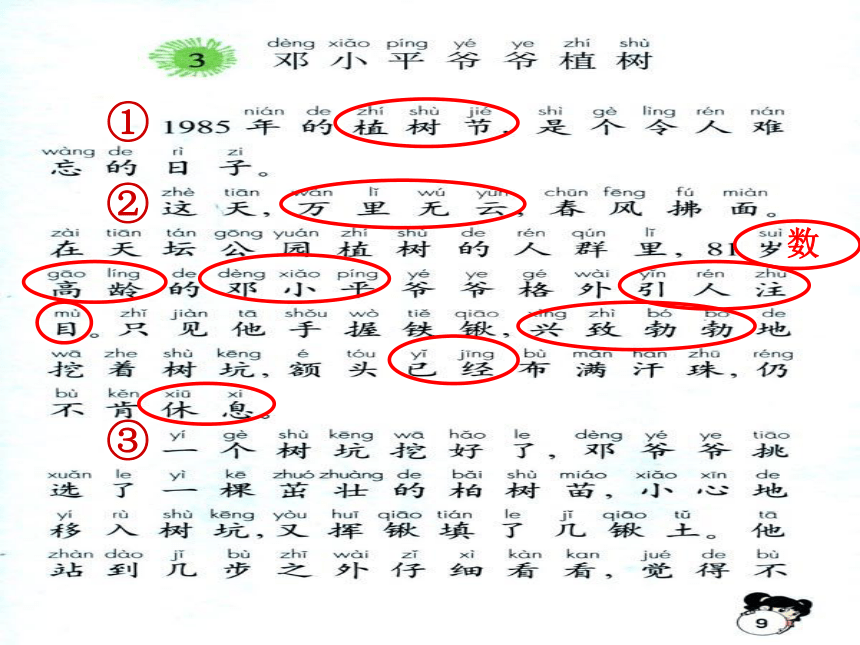 dèng xiǎo píng yé ye zhí shù
3 邓小平爷爷植树
nián de zhí shù jié shì gè lìng rén nán
① 1985年的植树节,是个令人难
wàng de rì zi
忘的日子。
zhè tiān wàn lǐ wú yún chūn fēng fú miàn
② 这天,万里无云,春风拂面。
zài tiān tán gōng yuán zhí shù de rén qún lǐ suì
在天坛公园植树的人群里,81岁数
gāo líng de dèng xiǎo píng yé ye gé wài yǐn rén zhù
高龄的邓小平爷爷格外引人注
mù zhǐ jiàn tā shǒu wò tiě qiāo xìng zhì bó bó de
目。只见他手握铁锹,兴致勃勃地
wā zhe shù kēng é tóu yǐ jīng bù mǎn hàn zhū réng
挖着树坑,额头已经布满汗珠,仍
bù kěn xiū xi
不肯休息。
yí gè shù kēng wā hǎo le dèng yé ye tiāo
③ 一个树坑挖好了,邓爷爷挑
xuǎn le yì kē zhuó zhuàng de bǎi shù miáo xiǎo xīn de
选了一棵茁壮的柏树苗,小心地
yí rù shù kēng yòu huī qiāo tián le jǐ qiāo tǔ tā
移入树坑,又挥锹填了几锹土。他
zhàn dào jǐ bù zhī wài zǐ xì kàn kan jué de bù
站到几步之外仔细看看,觉得不
9